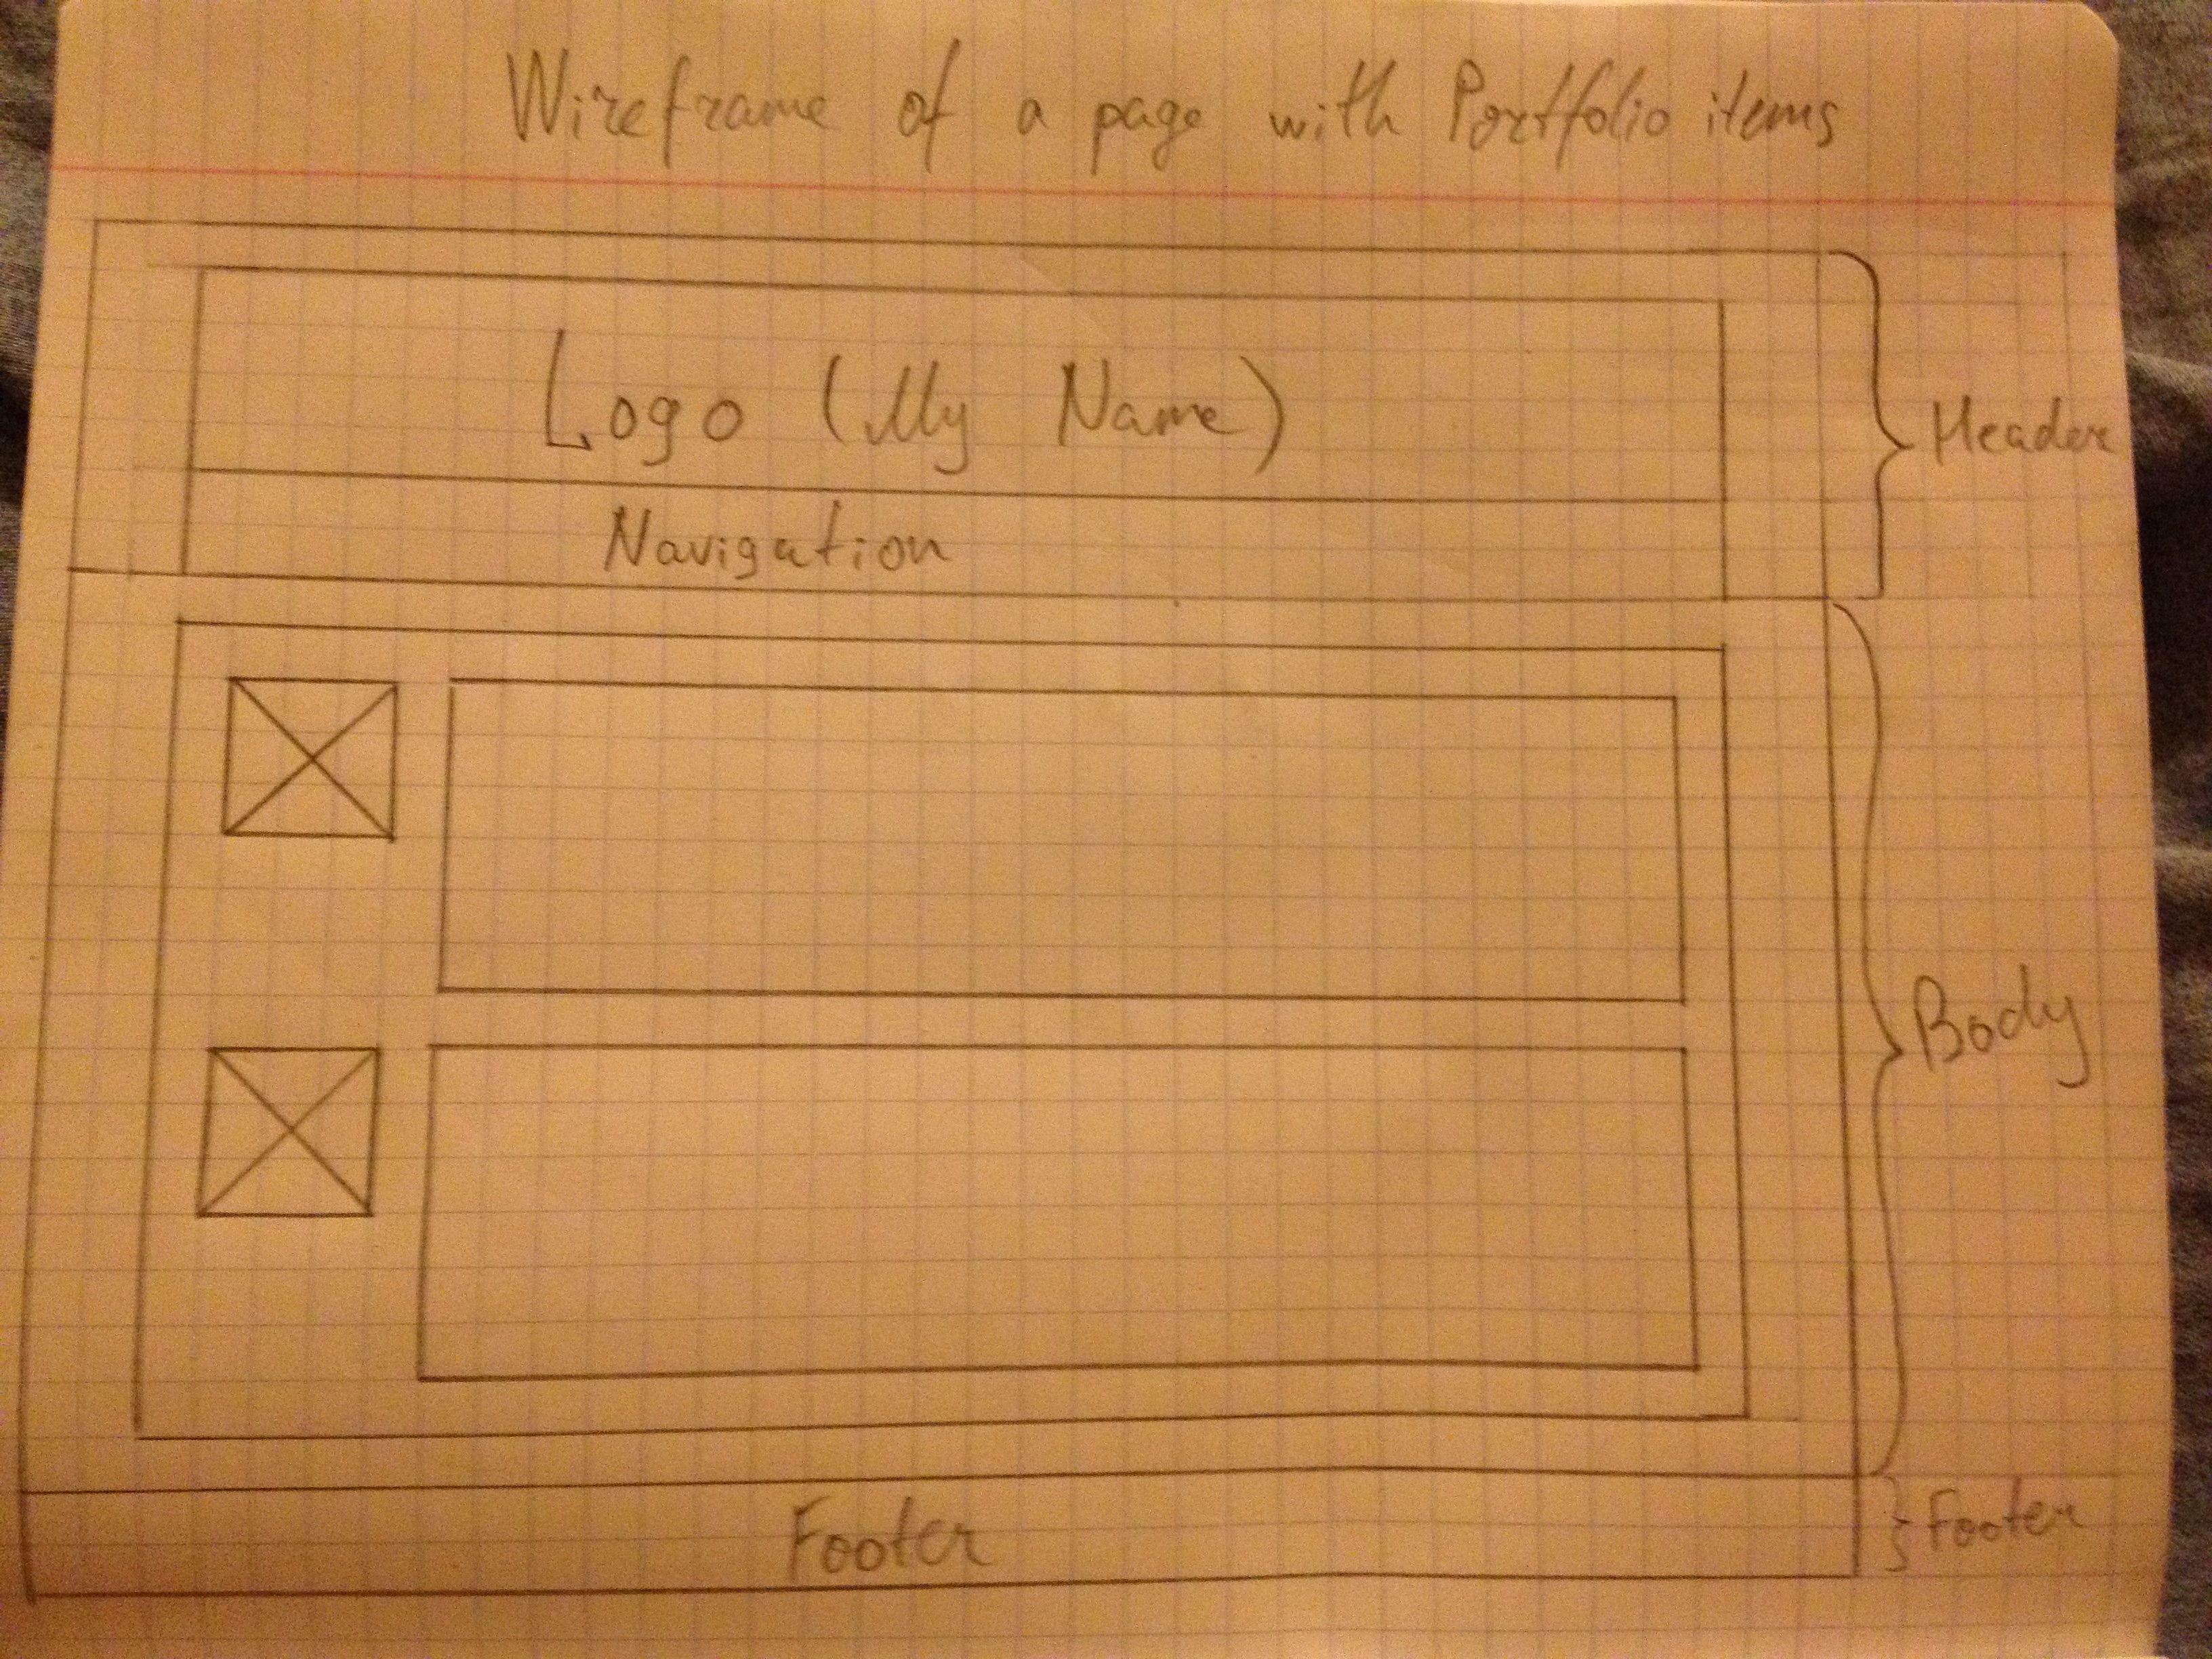 Wireframe of a page with Portfolio items
Logo (My Name)
Header
Navigation
Body
Footer
Footer